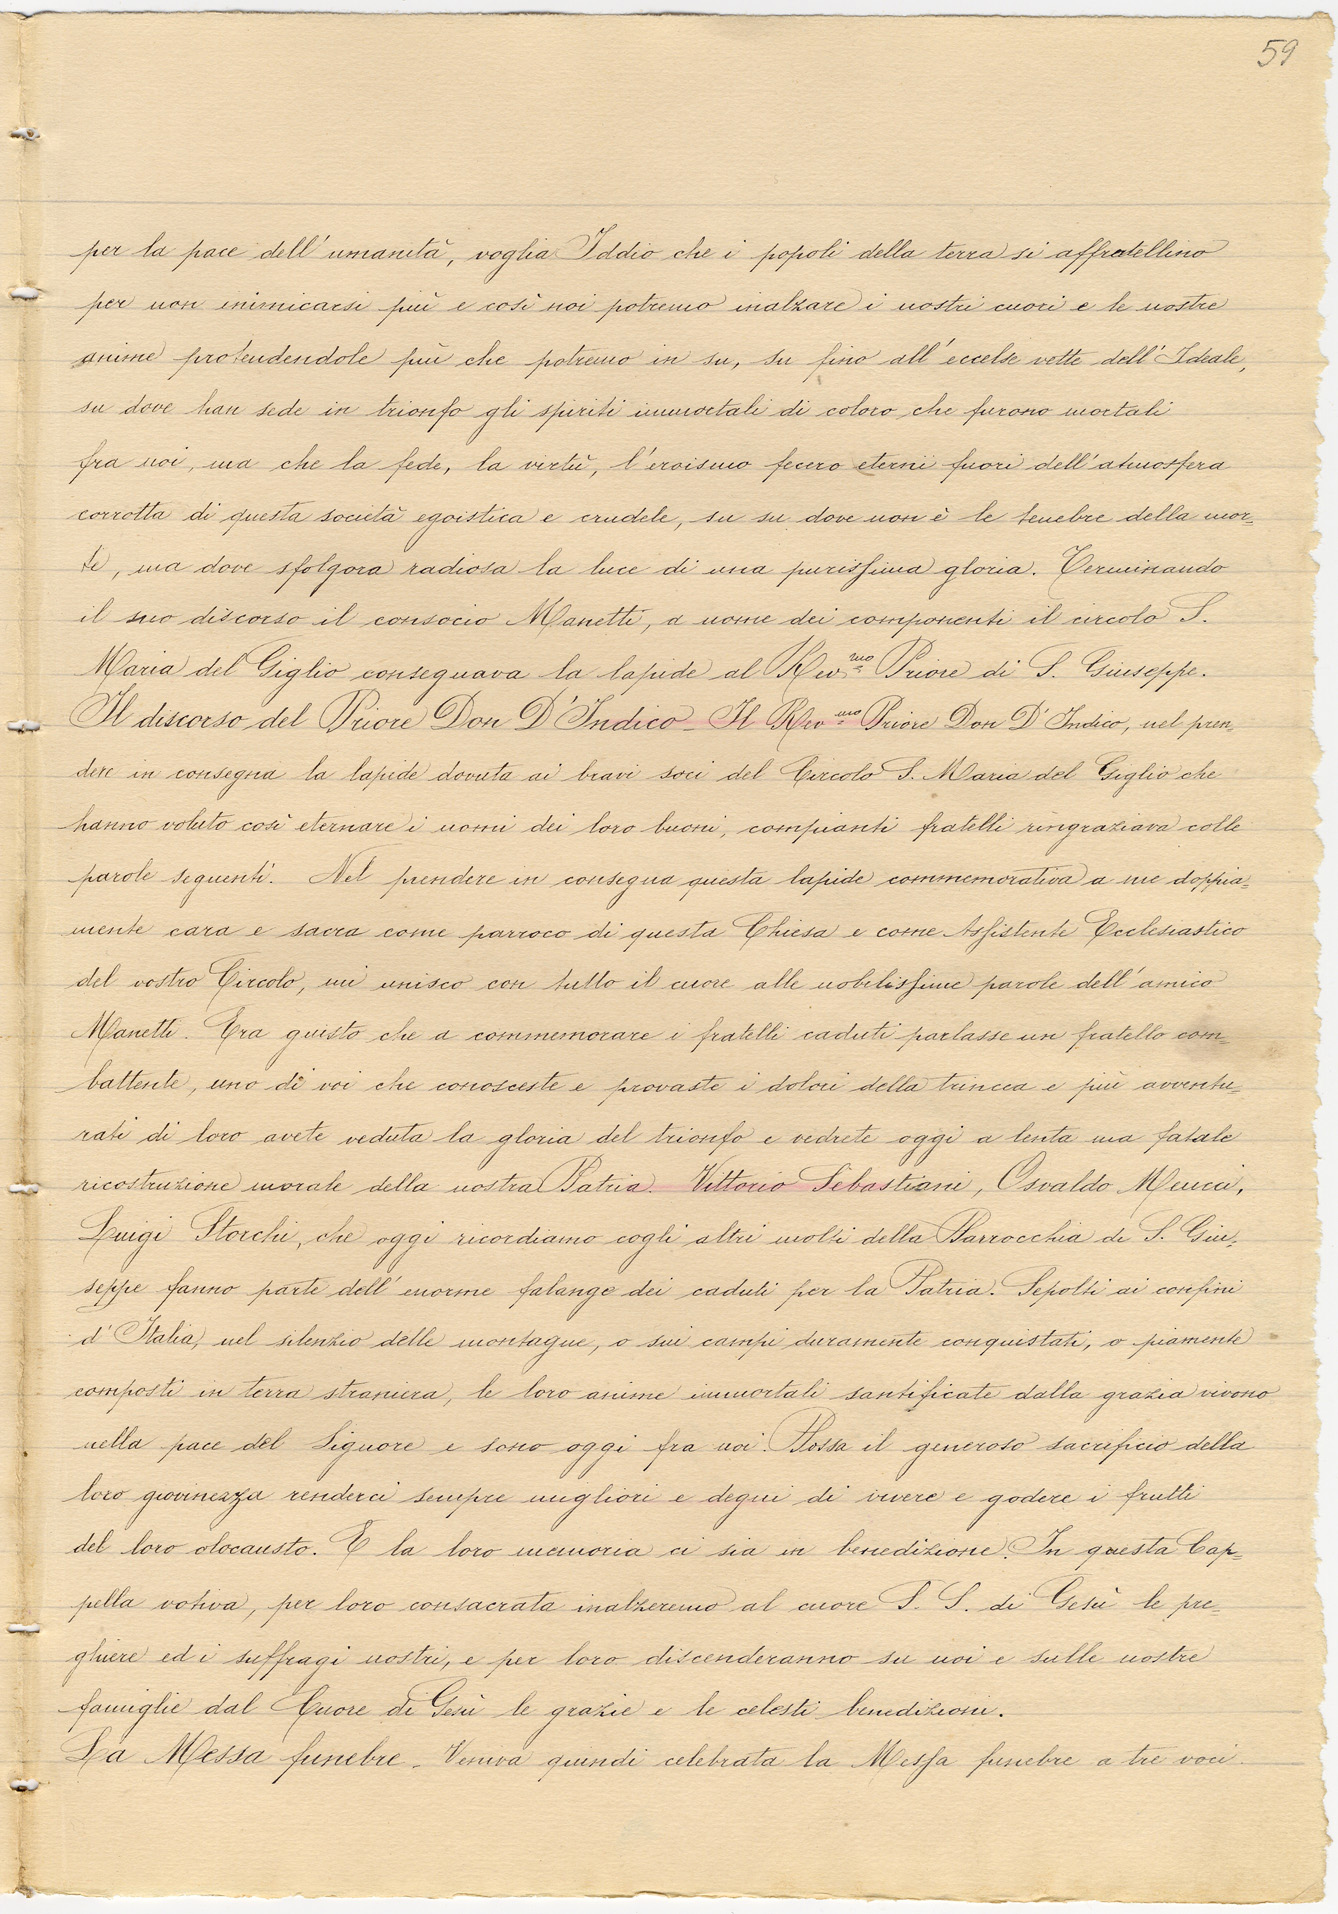 59
per la pace dell'umanità, voglia Iddio che i popoli della terra si affratellino
per non inimicarsi più e così noi potremo inalzare i nostri cuori e le nostre
anime protendendole più che potremo in su, su fino all'eccelse vette dell'Ideale,
su dove han sede in trionfo gli spiriti immortali di coloro che furono mortali
fra noi, ma che la fede, la virtù, l'eroismo fecero eterni fuori dell'atmosfera
corrotta di questa società egoistica e crudele, su su dove non è le tenebre della mor=
te, ma dove sfolgora radiosa la luce di una purissima gloria. Terminando
il suo discorso il consocio Manetti, a nome dei componenti il circolo S.
Maria del Giglio consegnava la lapide al Rev.mo Priore di S. Giuseppe.
Il discorso del Priore Don D'Indico - Il Rev.mo Priore Don D'Indico, nel pren=
dere in consegna la lapide dovuta ai bravi soci del Circolo S. Maria del Giglio che
hanno voluto così eternare i nomi dei loro buoni, compianti fratelli ringraziava colle
parole seguenti. Nel prendere in consegna questa lapide commemorativa a me doppia=
mente cara e sacra come parroco di questa Chiesa e come Assistente Ecclesiastico
del vostro Circolo, mi unisco con tutto il cuore alle nobilissime parole dell'amico
Manetti. Era giusto che a commemorare i fratelli caduti parlasse un fratello com=
battente, uno di voi che conosceste e provaste i dolori della trincea e più avventu=
rati di loro avete veduta la gloria del trionfo e vedrete oggi a lenta ma fatale
ricostruzione morale della nostra Patria. Vittorio Sebastiani, Osvaldo Meucci,
Luigi Storchi, che oggi ricordiamo cogli altri molti della Parrocchia di S. Giu=
seppe fanno parte dell'enorme falange dei caduti per la Patria. Sepolti ai confini
d'Italia, nel silenzio delle montagne, o sui campi duramente conquistati, o piamente
composti in terra straniera, le loro anime immortali santificate dalla grazia vivono
nella pace del Signore e sono oggi fra noi. Possa il generoso sacrificio della
loro giovinezza renderci sempre migliori e degni di vivere e godere i frutti
del loro olocausto. E la loro memoria ci sia in benedizione. In questa Cap=
pella votiva, per loro consacrata inalzeremo al cuore S. S. di Gesù le pre=
ghiere ed i suffragi nostri, e per loro discenderanno su noi e sulle nostre
famiglie dal Cuore di Gesù le grazie e le celesti benedizioni.
La Messa funebre - Veniva quindi celebrata la Messa funebre a tre voci